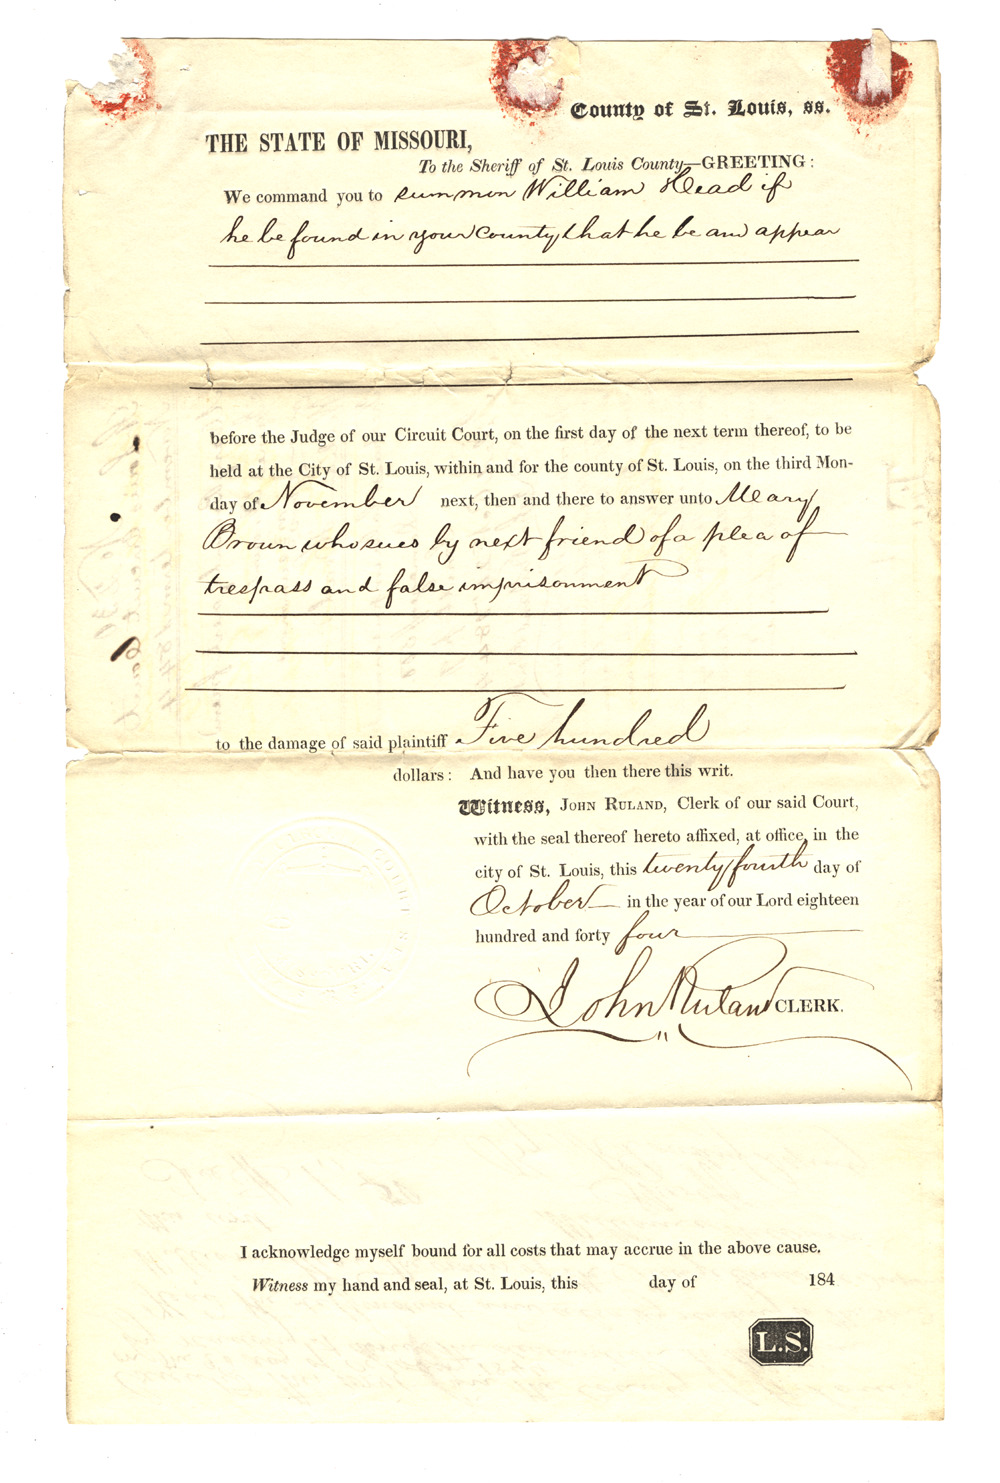 County of St. Louis, ss.
THE STATE OF MISSOURI,
To the Sheriff of St. Louis County—GREETING:
We command you to summon William Head if
he be found in your county, that he be and appear
before the Judge of our Circuit Court, on the first day of the next term thereof, to be
held at the City of St. Louis, within and for the county of St. Louis, on the third Mon-
day of November next, then and there to answer unto Mary
Brown who sues by next friend of a plea of
trespass and false imprisonment
to the damage of said plaintiff Five hundred
dollars: And have you then there this writ.
Witness, JOHN RULAND, Clerk of our said Court,
with the seal thereof hereto affixed, at office, in the
city of St. Louis, this twenty fourth day of
October in the year of our Lord eighteen
hundred and forty four
John Ruland CLERK.
I acknowledge myself bound for all costs that may accrue in the above cause.
Witness my hand and seal, at St. Louis, this day of 184
L.S.